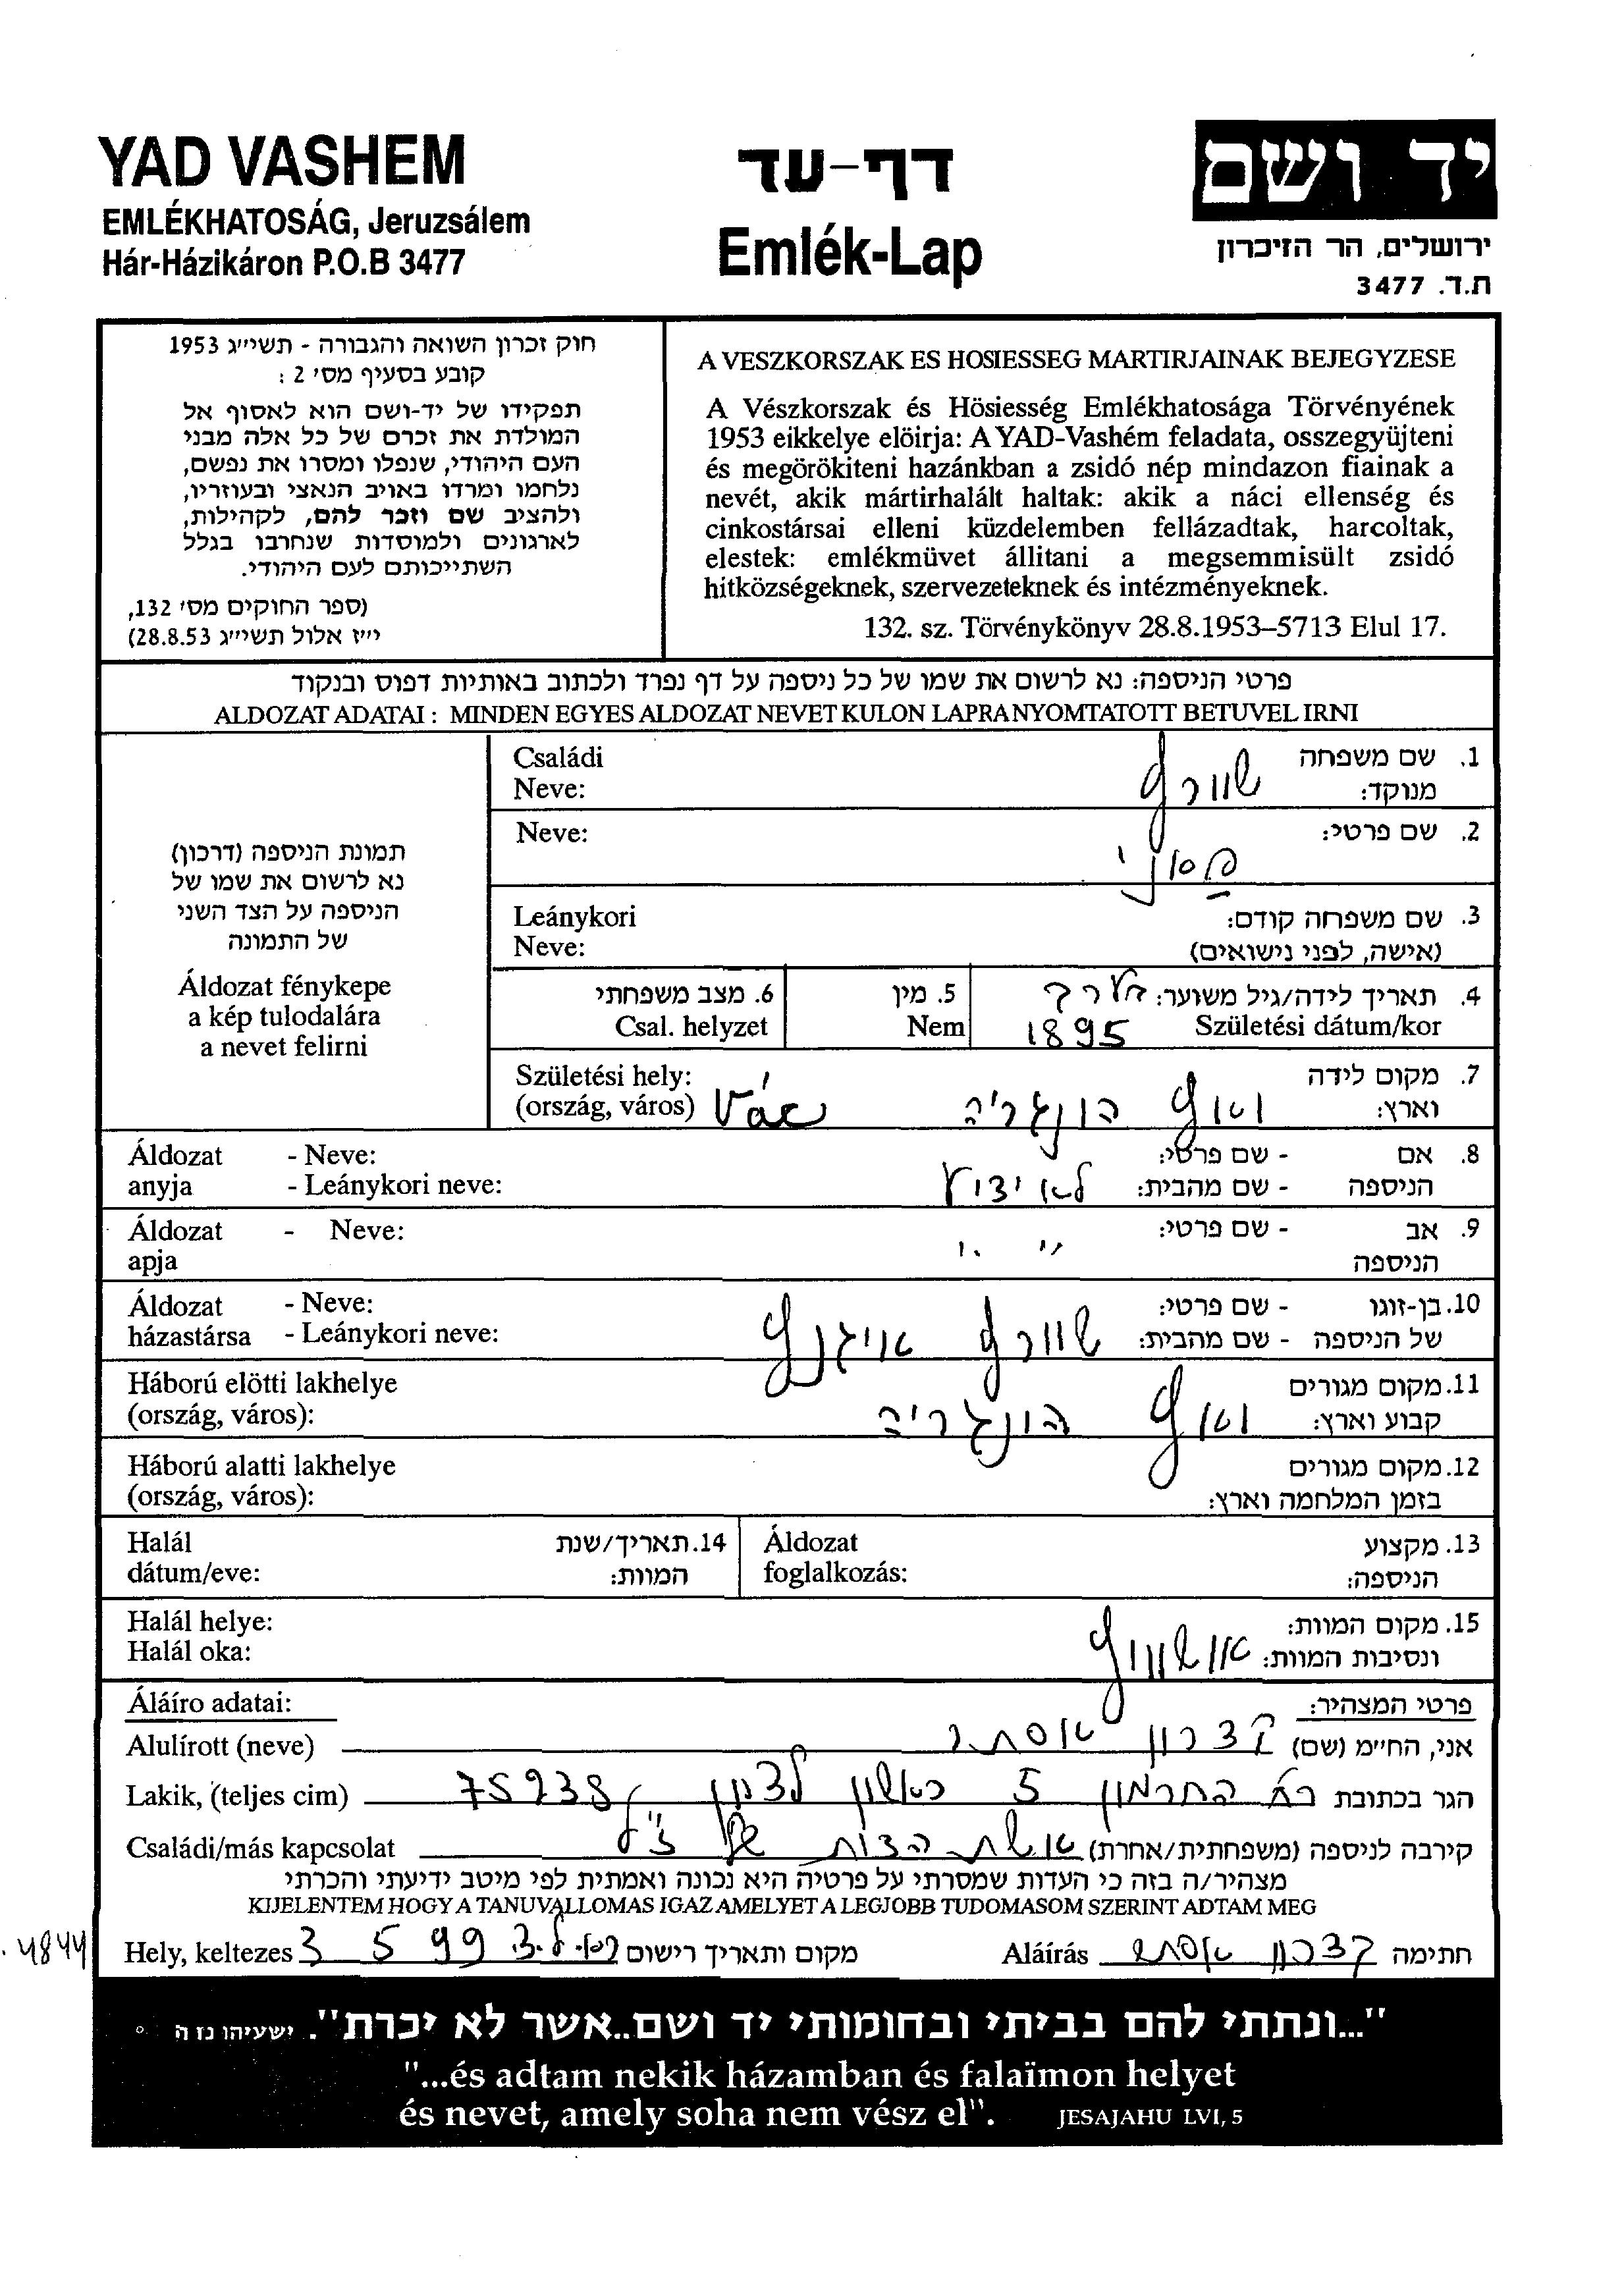 YAD VASHEM
EMLÉKHATOSÁG, Jeruzsálem
Hár-Házikáron P.O.B 3477
דף-עד
Emlék-Lap
יד ושם
ירושלים, הר הזיכרון
ת.ד. 3477
חוק זכרון השואה והגבורה - תשי״ג 1953
קובע בסעיף מס׳ 2 :
תפקידו של יד-ושם הוא לאסוף אל
המולדת את זכרם של כל אלה מבני
העם היהודי, שנפלו ומסרו את נפשם,
נלחמו ומרדו באויב הנאצי ובעוזריו,
ולהציב שם וזכר להם, לקהילות,
לארגונים ולמוסדות שנחרבו בגלל
השתייכותם לעם היהודי.
(ספר החוקים מס׳ 132,
י״ז אלול תשי״ג 28.8.53)
A VESZKORSZAK ES HOSIESSEG MARTIRJAINAK BEJEGYZESE
A Vészkorszak és Hösiesség Emlékhatosága Törvényének
1953 eikkelye elöirja: A YAD-Vashém feladata, osszegyüjteni
és megörökiteni hazánkban a zsidó nép mindazon fiainak a
nevét, akik mártirhalált haltak: akik a náci ellenség és
cinkostársai elleni küzdelemben fellázadtak, harcoltak,
elestek: emlékmüvet állitani a megsemmisült zsidó
hitközségeknek, szervezeteknek és intézményeknek.
132. sz. Törvénykönyv 28.8.1953–5713 Elul 17.
פרטי הניספה: נא לרשום את שמו של כל ניספה על דף נפרד ולכתוב באותיות דפוס ובנקוד
ALDOZAT ADATAI : MINDEN EGYES ALDOZAT NEVET KULON LAPRA NYOMTATOTT BETUVEL IRNI
תמונת הניספה (דרכון)
נא לרשום את שמו של
הניספה על הצד השני
של התמונה
Áldozat fénykepe
a kép tulodalára
a nevet felirni
1. שם משפחה
מנוקד: שוורץ
Családi
Neve:
2. שם פרטי:
Neve:
3. שם משפחה קודם:
(אישה, לפני נישואים)
Leánykori
Neve:
4. תאריך לידה/גיל משוער: הערך
Születési dátum/kor 1895
5. מין
Nem
6. מצב משפחתי
Csal. helyzet
7. מקום לידה
וארץ: ואץ הונגריה
Születési hely:
(ország, város) Vác
8. אם - שם פרטי:
הניספה - שם מהבית: לא ידוע
Áldozat - Neve:
anyja - Leánykori neve:
9. אב - שם פרטי: " "
הניספה
Áldozat - Neve:
apja
10. בן-זוגו - שם פרטי:
של הניספה - שם מהבית: שוורץ איגנץ
Áldozat - Neve:
házastársa - Leánykori neve:
11. מקום מגורים
קבוע וארץ: ואץ הונגריה
Háború elötti lakhelye
(ország, város):
12. מקום מגורים
בזמן המלחמה וארץ:
Háború alatti lakhelye
(ország, város):
13. מקצוע
הניספה:
Áldozat
foglalkozás:
14. תאריך/שנת
המוות:
Halál
dátum/eve:
15. מקום המוות:
ונסיבות המוות: אושוויץ
Halál helye:
Halál oka:
פרטי המצהיר:
Áláíro adatai:
אני, החי״מ (שם) קצבורן אסתר
Alulírott (neve)
הגר בכתובת החרמון 5 ראשון לציון 75238
Lakik, (teljes cim)
קירבה לניספה (משפחתית/אחרת)
Családi/más kapcsolat
מצהיר/ה בזה כי העדות שמסרתי על פרטיה היא נכונה ואמתית לפי מיטב ידיעתי והכרתי
KIJELENTEM HOGY A TANUVALLOMAS IGAZ AMELYET A LEGJOBB TUDOMASOM SZERINT ADTAM MEG
חתימה
Aláírás
מקום ותאריך רישום 3 5 99
Hely, keltezes
4844
"...ונתתי להם בביתי ובחומותי יד ושם..אשר לא יכרת". ישעיהו נו ה
"...és adtam nekik házamban és falaïmon helyet
és nevet, amely soha nem vész el". JESAJAHU LVI, 5